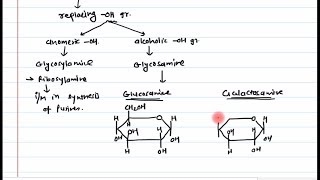 replacing -OH gr.
anomeric -OH. alcoholic -OH gr.
Glycosylamine Glycosamine
→ Ribosylamine
I/M in synthesis
of purines.
Glucosamine Galactosamine
CH₂OH
O O
H H H
OH OH
OH OH
H H